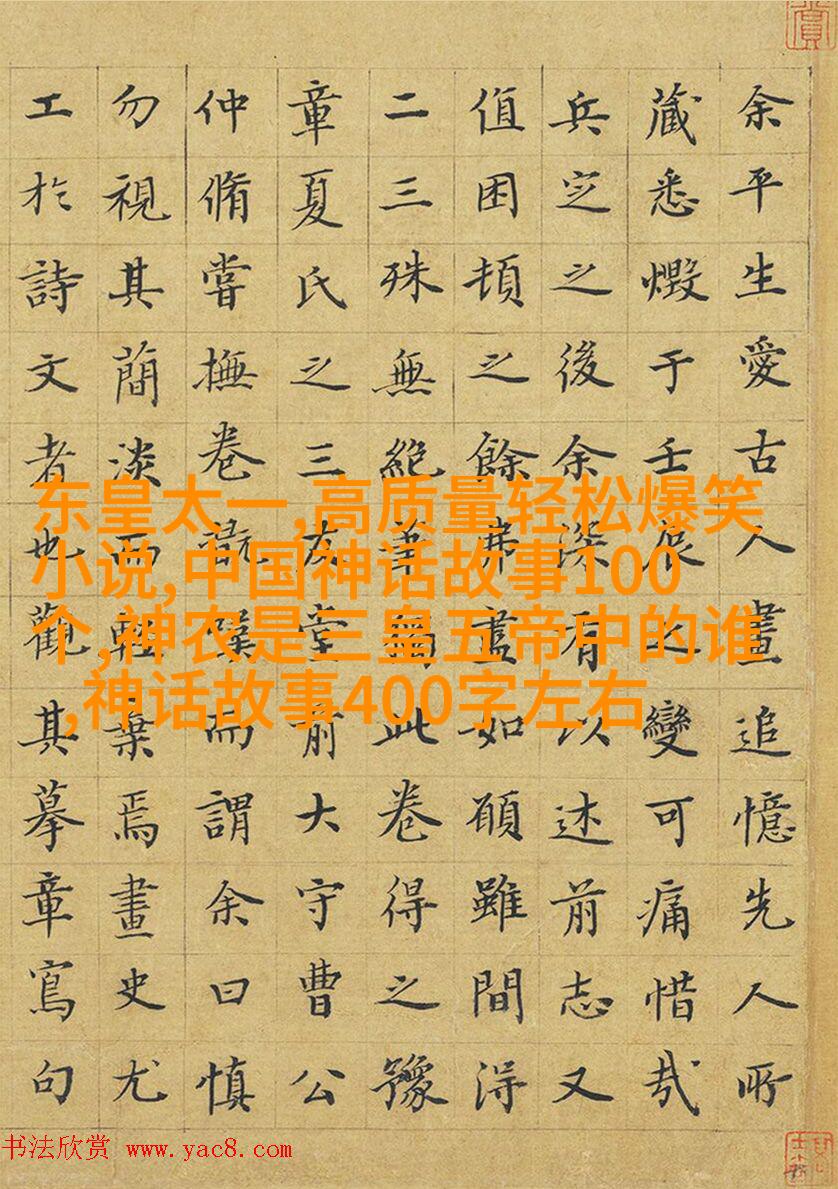 余平生愛古人畫追憶先人所
藏悉燬于壬辰之變可痛惜哉
兵定之後余深有以述前志又
值困頓之餘弗盡如願雖間淂
二三殊無絕筆獨此卷得之豫
章夏氏之三友堂前大守曹公
仲脩嘗撫卷翫嘆而謂余曰慎
勿視其蕳淡而輕棄焉畫史尤
工於詩文者也觀其摹章寫句
东皇太一,高质量轻松爆笑
小说,中国神话故事100
个,神农是三皇五帝中的谁
,神话故事400字左右
书法欣赏 www.yac8.com